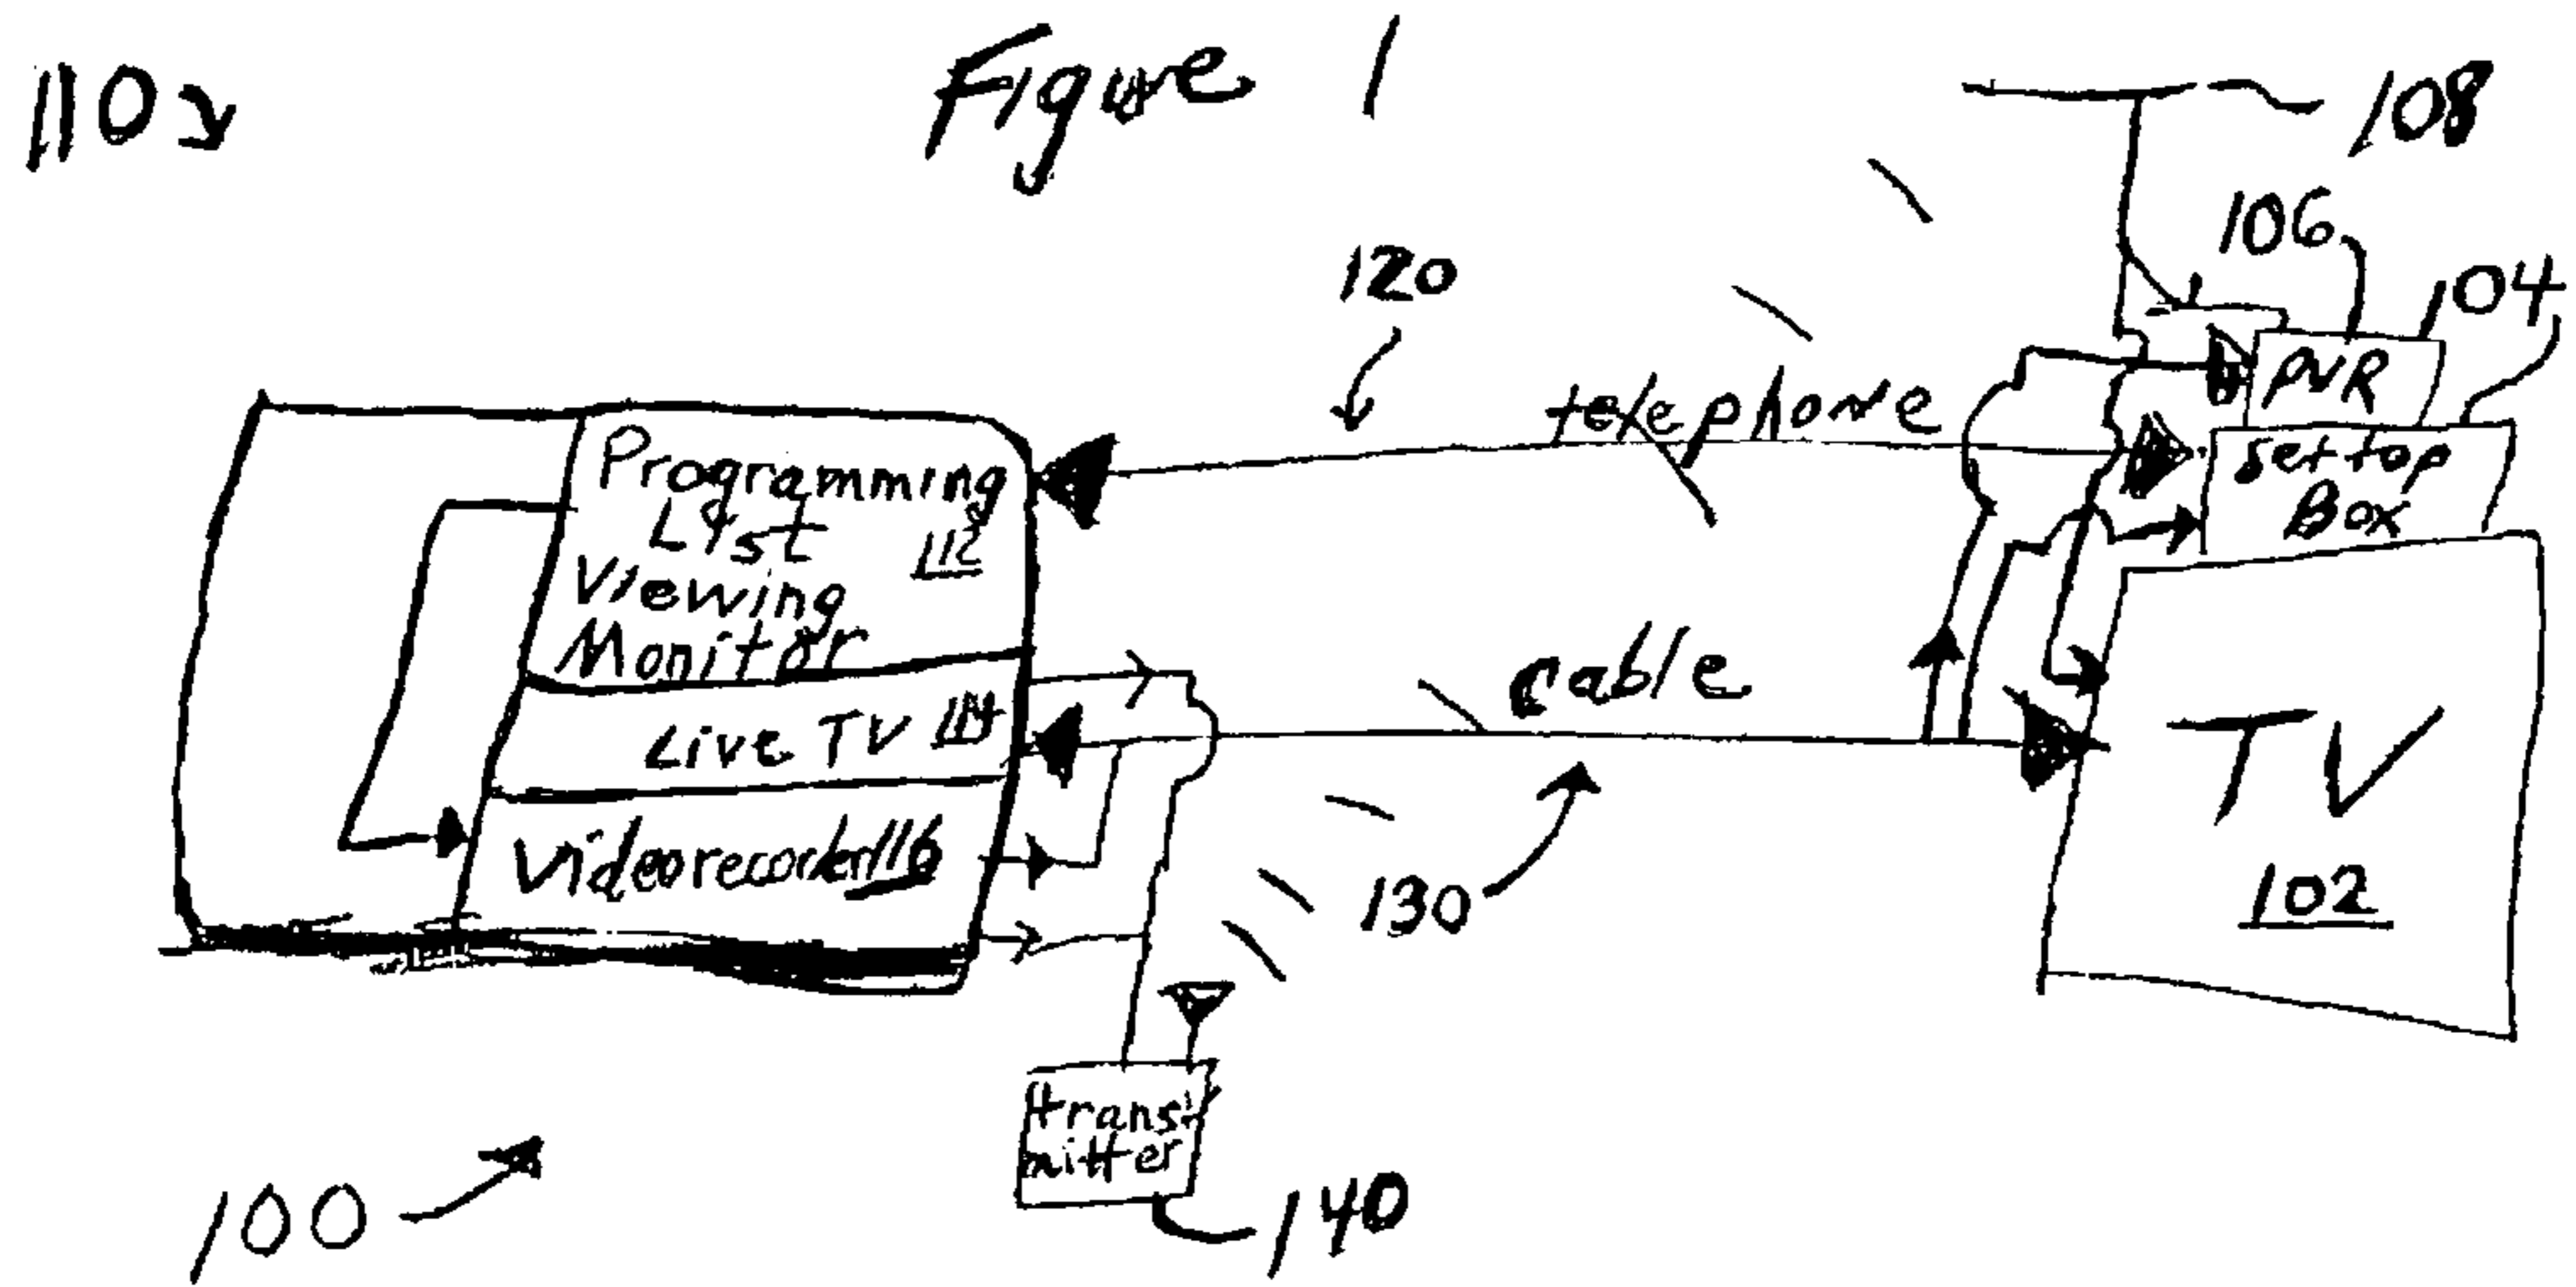 Figure 1
110
108
106
104
120
telephone
PVR
set top
Box
Programming
List
112
Viewing
Monitor
Live TV 114
Videorecorder 116
cable
130
TV
102
trans-
mitter
140
100